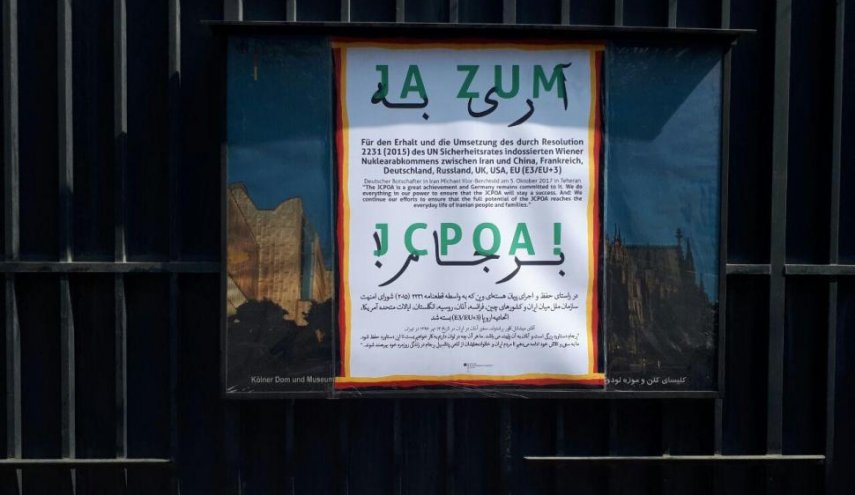 JA ZUM
آری به
Für den Erhalt und die Umsetzung des durch Resolution
2231 (2015) des UN Sicherheitsrates indossierten Wiener
Nuklearabkommens zwischen Iran und China, Frankreich,
Deutschland, Russland, UK, USA, EU (E3/EU+3)
Deutscher Botschafter in Iran Michael Klor-Berchtold am 5. Oktober 2017 in Teheran
"The JCPOA is a great achievement and Germany remains committed to it. We do
everything in our power to ensure that the JCPOA will stay a success. And: We
continue our efforts to ensure that the full potential of the JCPOA reaches the
everyday life of Iranian people and families."
JCPOA!
برجام!
در راستای حفظ و اجرای پیمان هسته‌ای وین که به واسطه قطعنامه ۲۲۳۱ (۲۰۱۵) شورای امنیت
سازمان ملل میان ایران و کشورهای چین، فرانسه، آلمان، روسیه، انگلستان، ایالات متحده آمریکا،
اتحادیه اروپا (E3/EU+3) بسته شد
Kölner Dom und Museum
کلیسای کلن و موزه لودو